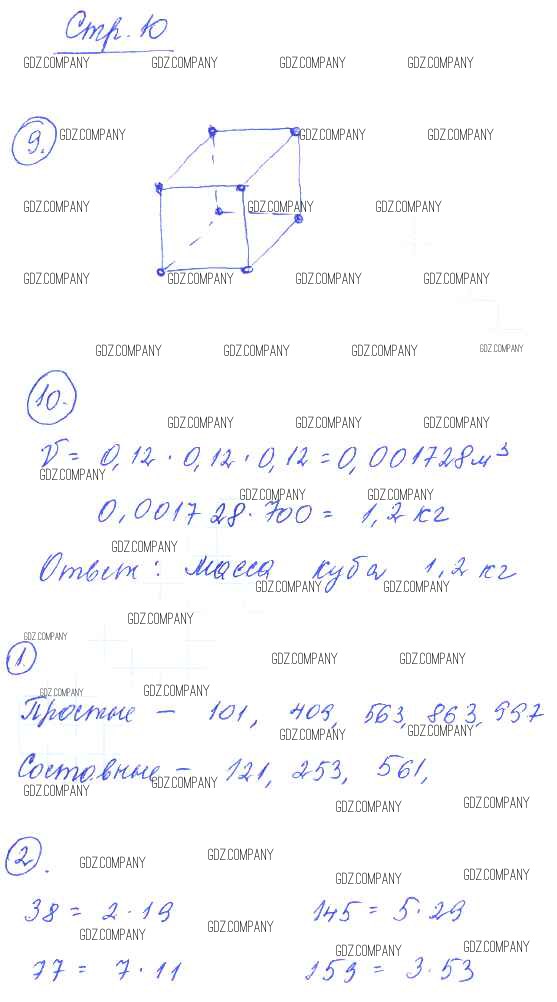 Стр. 10
GDZ.COMPANY GDZ.COMPANY GDZ.COMPANY GDZ.COMPANY
9. GDZ.COMPANY GDZ.COMPANY GDZ.COMPANY
GDZ.COMPANY GDZ.COMPANY GDZ.COMPANY
GDZ.COMPANY GDZ.COMPANY GDZ.COMPANY GDZ.COMPANY
GDZ.COMPANY GDZ.COMPANY GDZ.COMPANY GDZ.COMPANY
10.
GDZ.COMPANY GDZ.COMPANY GDZ.COMPANY
V = 0,12 · 0,12 · 0,12 = 0,001728 м³
GDZ.COMPANY
GDZ.COMPANY GDZ.COMPANY
0,001728 · 700 = 1,2 кг
GDZ.COMPANY
Ответ: масса куба 1,2 кг
GDZ.COMPANY GDZ.COMPANY
GDZ.COMPANY
GDZ.COMPANY
1. GDZ.COMPANY GDZ.COMPANY
GDZ.COMPANY GDZ.COMPANY
Простые – 101, 409, 563, 863, 997
GDZ.COMPANY GDZ.COMPANY
Составные – 121, 253, 561,
GDZ.COMPANY GDZ.COMPANY
GDZ.COMPANY GDZ.COMPANY
2.
GDZ.COMPANY GDZ.COMPANY
GDZ.COMPANY GDZ.COMPANY
38 = 2 · 19 145 = 5 · 29
GDZ.COMPANY GDZ.COMPANY
GDZ.COMPANY GDZ.COMPANY
77 = 7 · 11 159 = 3 · 53